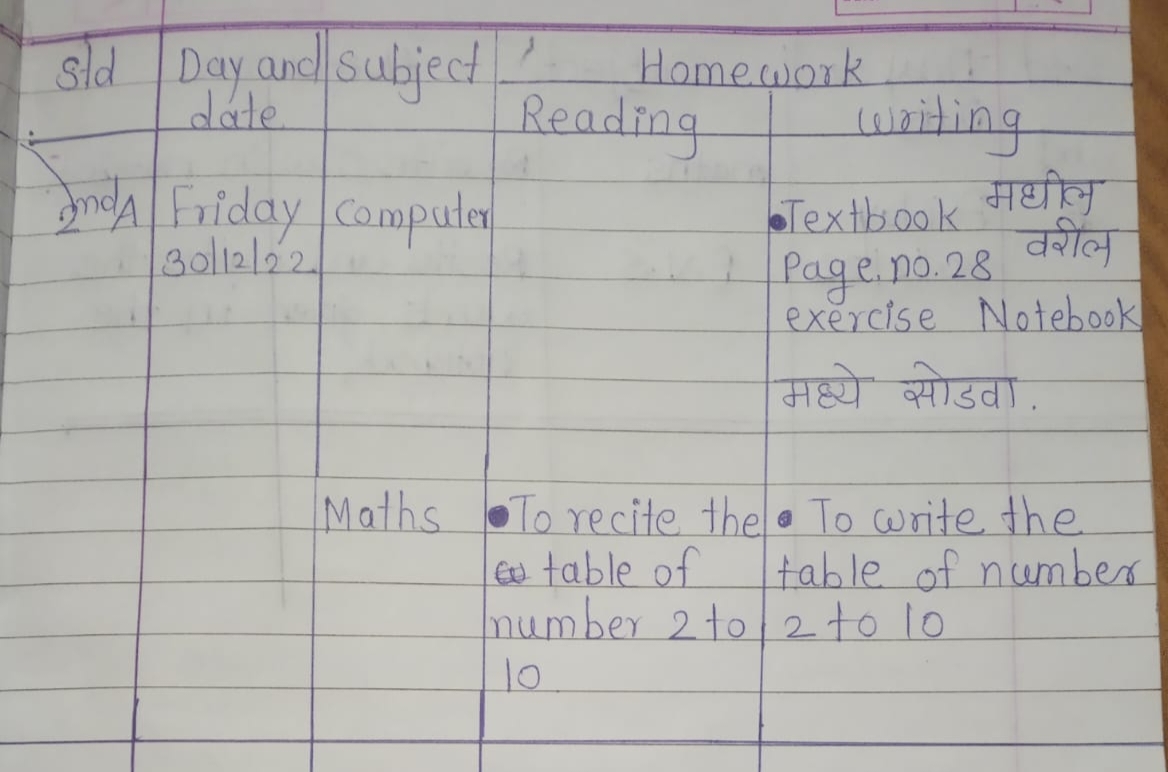 Std Day and Subject Homework
date Reading Writing
2nd A Friday Computer • Textbook मधील
30/12/22 Page. no. 28 वरील
exercise Notebook
मध्ये सोडवा.
Maths • To recite the • To write the
table of table of number
number 2 to 2 to 10
10